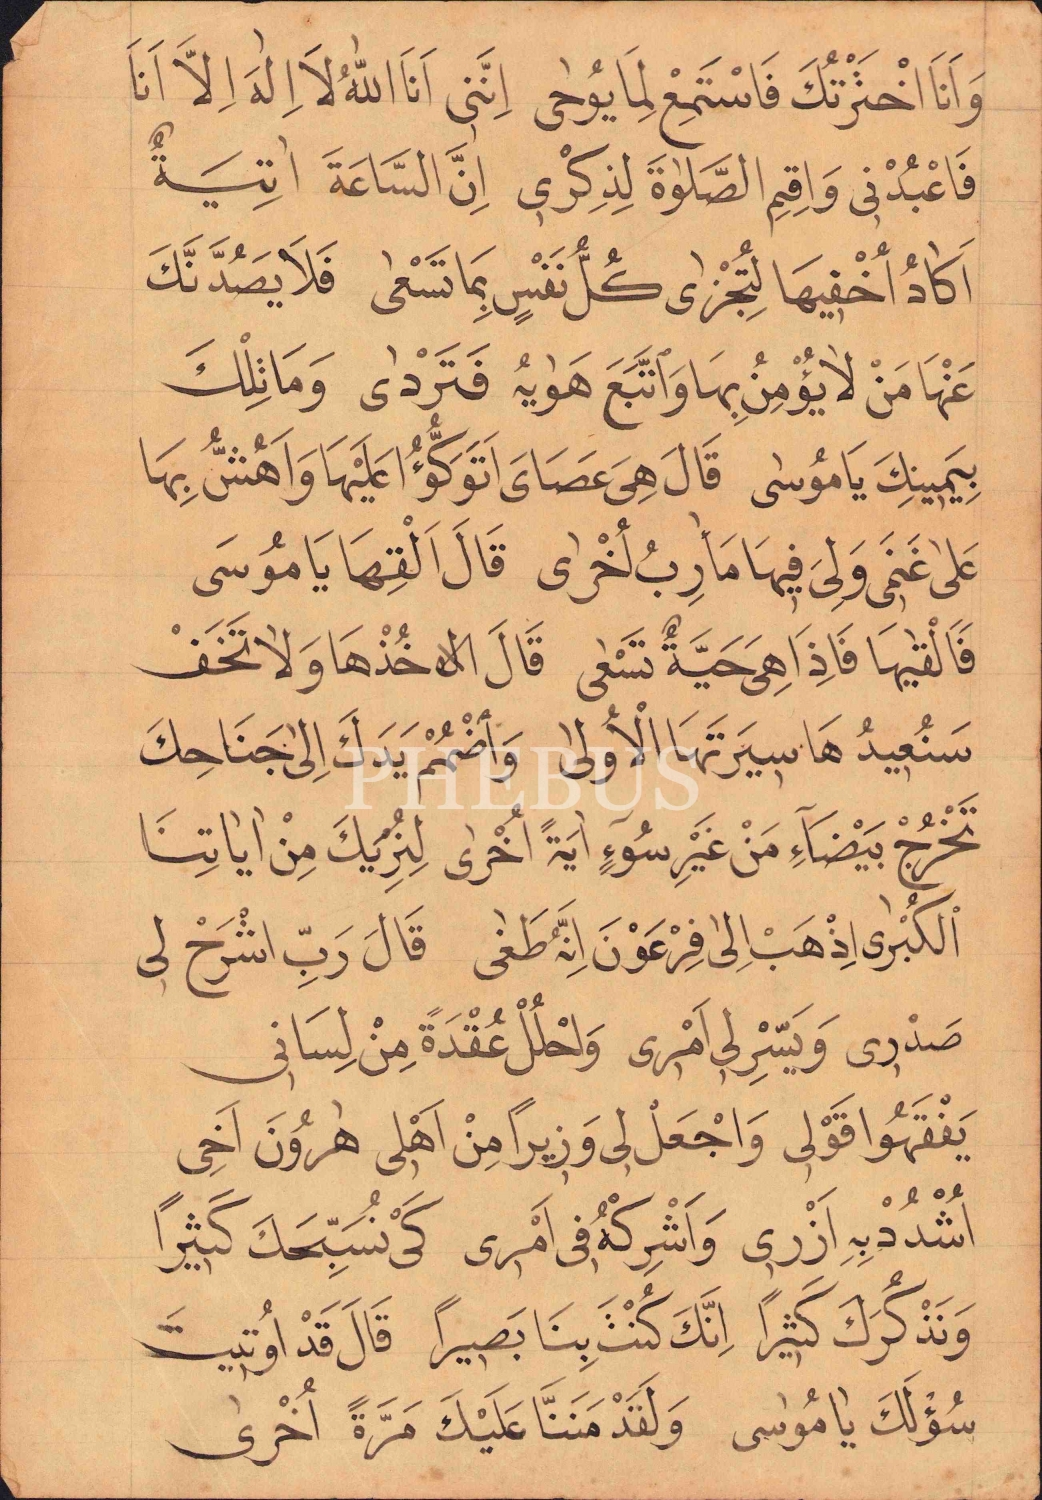 وَاَنَا اخْتَرْتُكَ فَاسْتَمِعْ لِمَا يُوحٰى اِنَّنى اَنَا اللّٰهُ لَا اِلٰهَ اِلَّا اَنَا
فَاعْبُدْنى وَاَقِمِ الصَّلٰوةَ لِذِكْرى اِنَّ السَّاعَةَ اٰتِيَةٌ
اَكَادُ اُخْفِيهَا لِتُجْزٰى كُلُّ نَفْسٍ بِمَا تَسْعٰى فَلَا يَصُدَّنَّكَ
عَنْهَا مَنْ لَا يُؤْمِنُ بِهَا وَاتَّبَعَ هَوٰيهُ فَتَرْدٰى وَمَا تِلْكَ
بِيَمِينِكَ يَا مُوسٰى قَالَ هِىَ عَصَاىَ اَتَوَكَّؤُا عَلَيْهَا وَاَهُشُّ بِهَا
عَلٰى غَنَمى وَلِىَ فِيهَا مَاٰرِبُ اُخْرٰى قَالَ اَلْقِهَا يَا مُوسَى
فَاَلْقٰيهَا فَاِذَا هِىَ حَيَّةٌ تَسْعٰى قَالَ خُذْهَا وَلَا تَخَفْ
سَنُعِيدُهَا سِيرَتَهَا الْاُولٰى وَاضْمُمْ يَدَكَ اِلٰى جَنَاحِكَ
تَخْرُجْ بَيْضَآءِ مَنْ غَيْرِ سُوٓءٍ اٰيَةً اُخْرٰى لِنُرِيَكَ مِنْ اٰيَاتِنَا
الْكُبْرٰى اِذْهَبْ اِلٰى فِرْعَوْنَ اِنَّهُ طَغٰى قَالَ رَبِّ اشْرَحْ لى
صَدْرى وَيَسِّرْ لى اَمْرى وَاحْلُلْ عُقْدَةً مِنْ لِسَانى
يَفْقَهُوا قَوْلى وَاجْعَلْ لى وَزيراً مِنْ اَهْلى هٰرُونَ اَخِى
اشْدُدْ بِهِ اَزْرى وَاَشْرِكْهُ فى اَمْرى كَىْ نُسَبِّحَكَ كَثيراً
وَنَذْكُرَكَ كَثيراً اِنَّكَ كُنْتَ بِنَا بَصيراً قَالَ قَدْ اُوتيتَ
سُؤْلَكَ يَا مُوسٰى وَلَقَدْ مَنَنَّا عَلَيْكَ مَرَّةً اُخْرٰى
PHEBUS